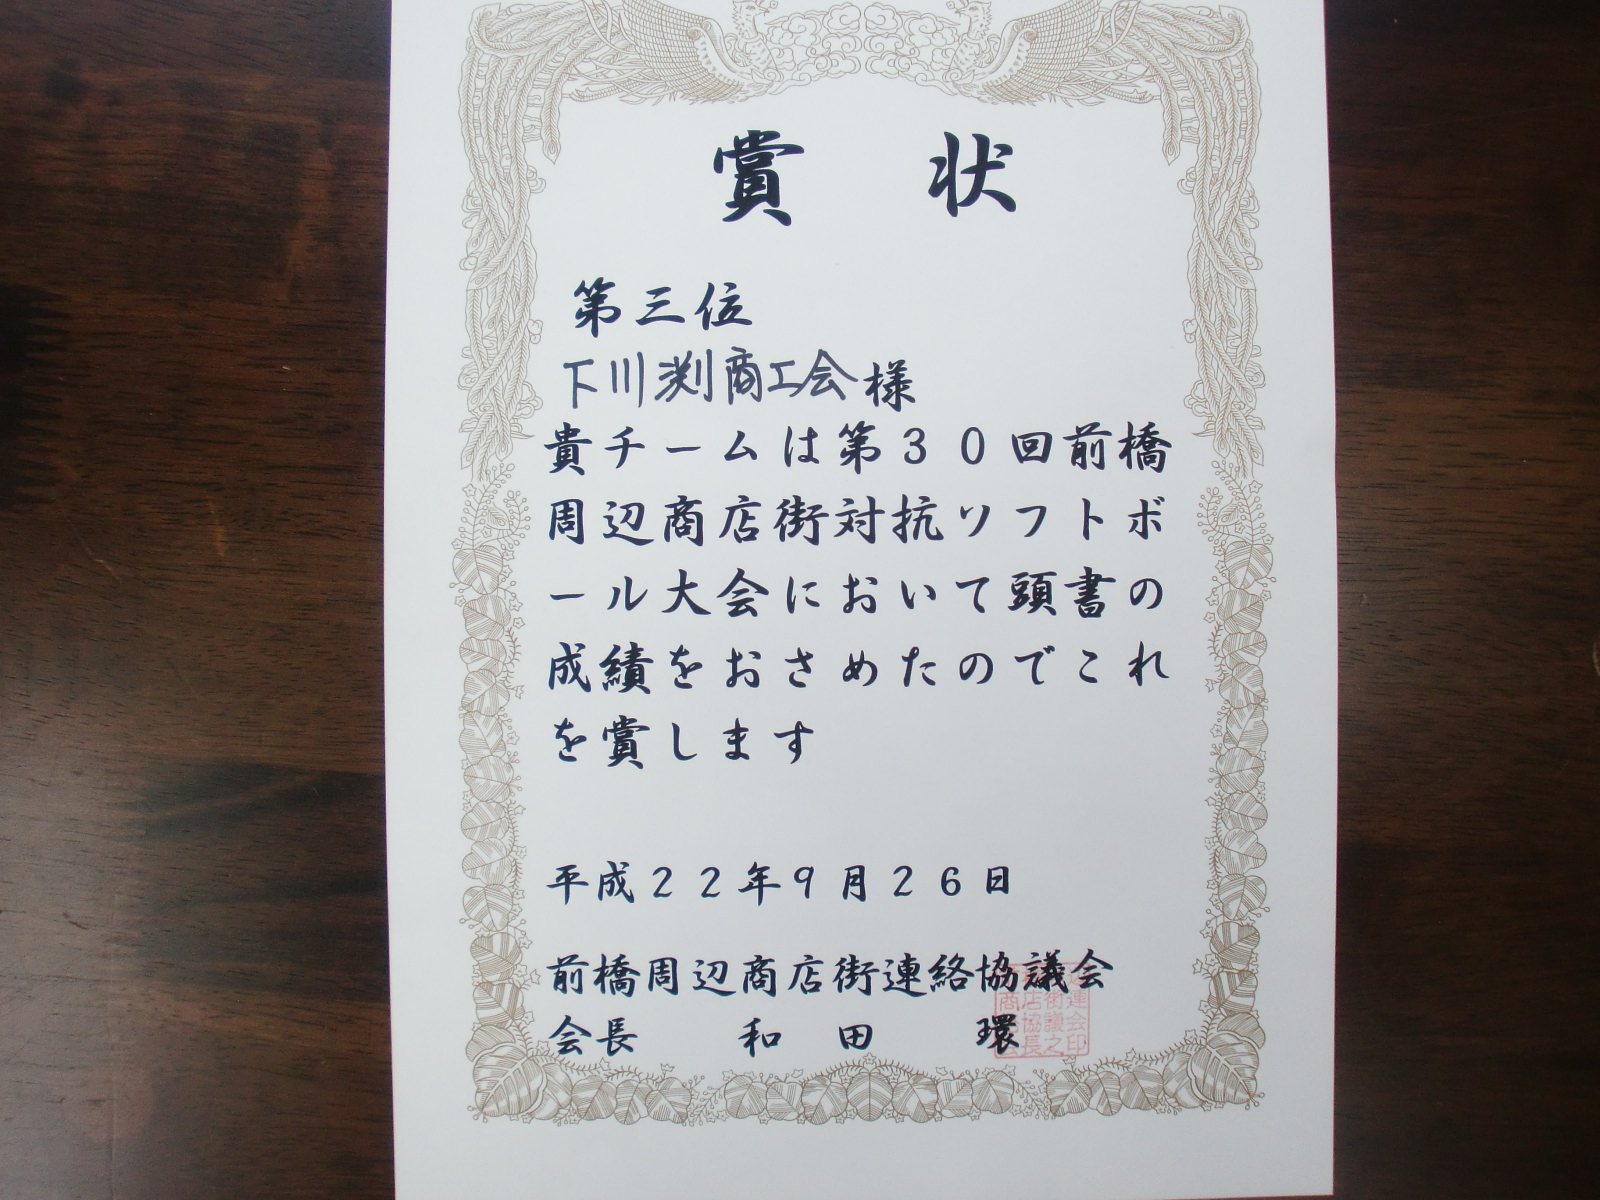 賞 状
第三位
下川渕商工会様
貴チームは第30回前橋
周辺商店街対抗ソフトボ
ール大会において頭書の
成績をおさめたのでこれ
を賞します
平成22年9月26日
前橋周辺商店街連絡協議会
会長 和田 環